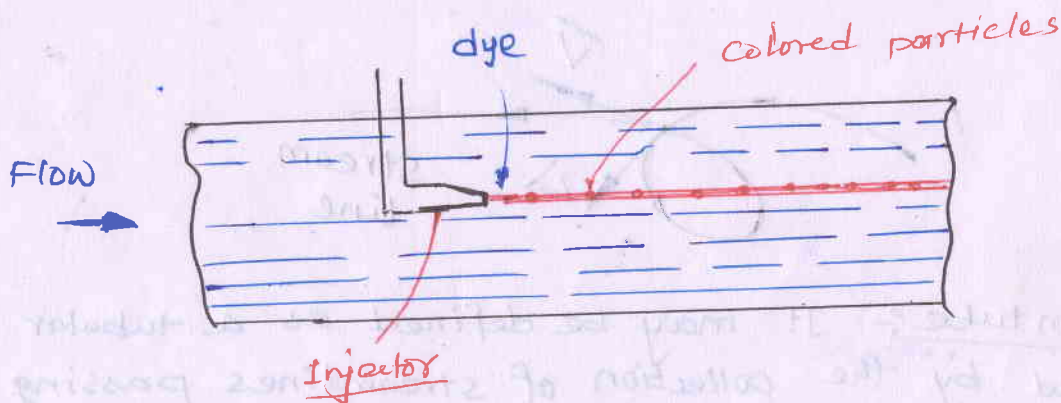 dye
colored particles
Flow
Injector